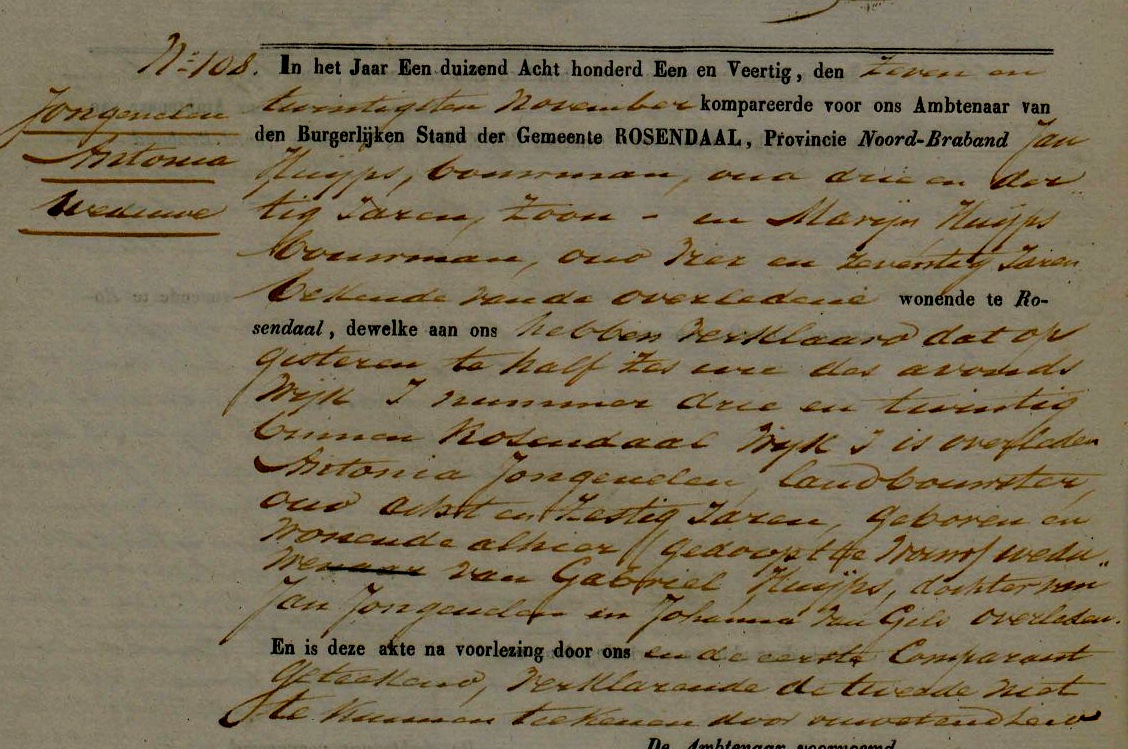 N: 108.
Jongenelen
Antonia
Weduwe
In het Jaar Een duizend Acht honderd Een en Veertig, den zeven en
twintigsten November kompareerde voor ons Ambtenaar van
den Burgerlijken Stand der Gemeente ROSENDAAL, Provincie Noord-Braband Jan
Huijps, bouwman, oud drie en der
tig Jaren, Zoon - en Marijn Huijps
bouwman, oud vier en zeventig Jaren
bekende van de overledene wonende te Ro-
sendaal, dewelke aan ons hebben verklaard dat op
gisteren te half zes ure des avonds
Wijk I nummer drie en twintig
binnen Rosendaal Wijk I is overleden
Antonia Jongenelen landbouwster,
oud acht en zestig Jaren, geboren en
wonende alhier (gedoopt te Wouw) wedu„
we van Gabriel Huijps, dochter van
Jan Jongenelen en Johanna van Gils overleden.
En is deze akte na voorlezing door ons en de eerste Comparant
geteekend, verklarende de tweede niet
te kunnen teekenen door onwetendheid
De Ambtenaar voornoemd